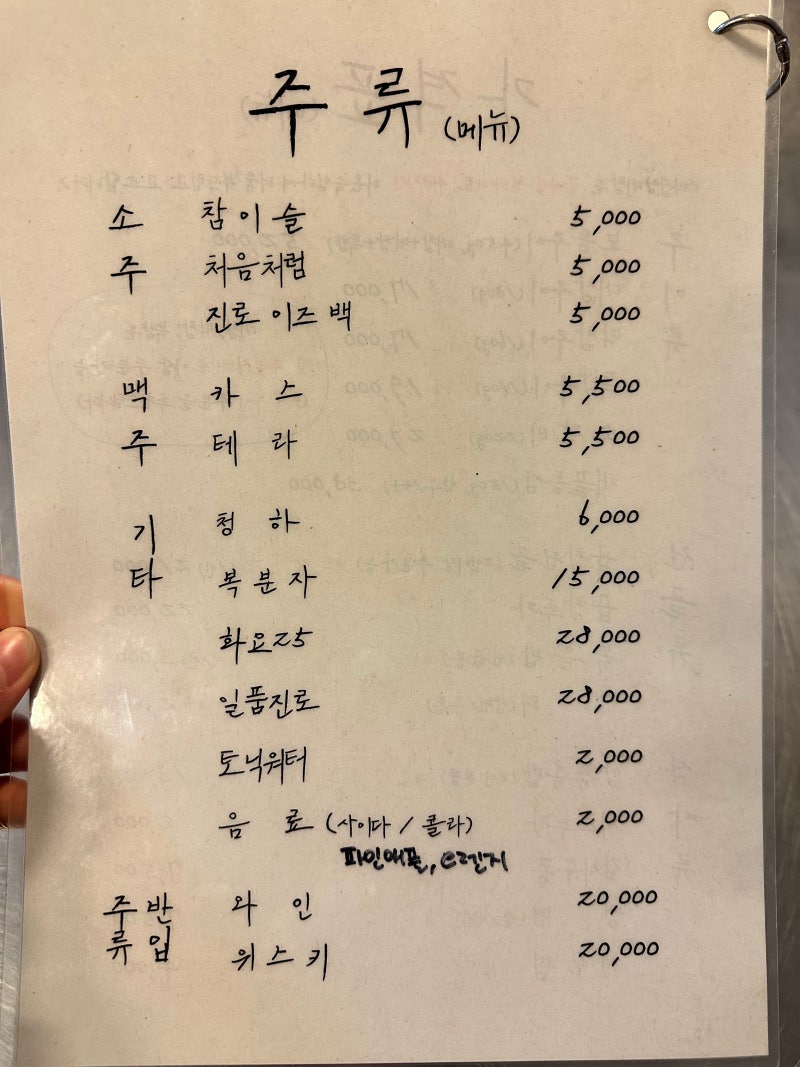 주 류 (메뉴)
소 참이슬 5,000
주 처음처럼 5,000
진로이즈백 5,000
맥 카스 5,500
주 테라 5,500
기 청하 6,000
타 복분자 15,000
화요25 28,000
일품진로 28,000
토닉워터 2,000
음료 (사이다 / 콜라) 2,000
파인애플, 오렌지
주 반 와인 20,000
류 입 위스키 20,000